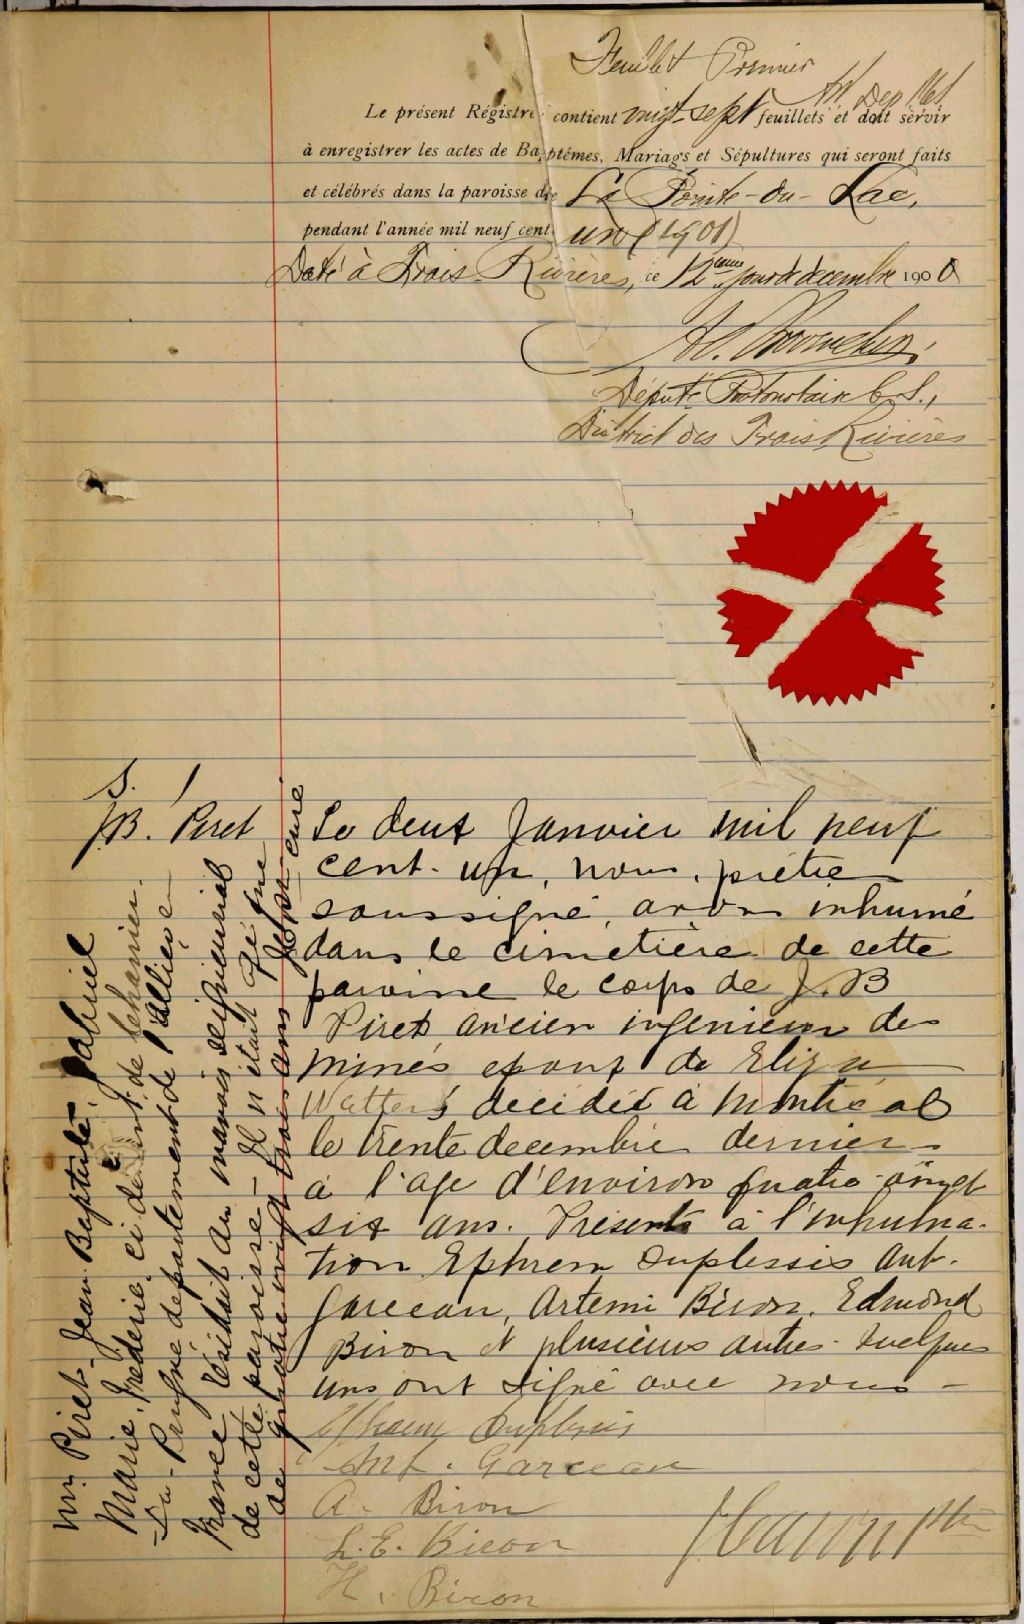 Feuillet Premier
Le présent Régistre contient vingt-sept feuillets et doit servir
à enregistrer les actes de Baptêmes, Mariages et Sépultures qui seront faits
et célébrés dans la paroisse de La Pointe-du-Lac,
pendant l'année mil neuf cent un (1901)
Daté à Trois Rivières, ce 12ième jour de decembre 1900
Député Protonotaire C.S.,
District des Trois Rivières
S. 1
J.B. Piret
Le deux Janvier mil neuf
cent-un, nous, prêtre
soussigné, avons inhumé
dans le cimetière de cette
paroisse le corps de J.B
Piret ancien ingenieur de
mines epoux de Eliza
Watters décidée à Montreal
le trente decembre dernier
à l'age d'environ quatre-vingt
six ans. Présents à l'inhuma-
tion Ephrem Duplessis Ant.
Garceau, Artemi Biron, Edmond
Biron et plusieurs autres. Quelques
uns ont signé avec nous -
Ephrem Duplessis
Ant. Garceau
A. Biron
L.E. Biron
H. Biron
Mr. Piret, Jean Baptiste, Gabriel
Marie, Fréderic, ci devant de
département de l'allier en
France résidait au manoir seigneurial
de cette paroisse - Il n'était agé que
de quatre vingt trois ans curé